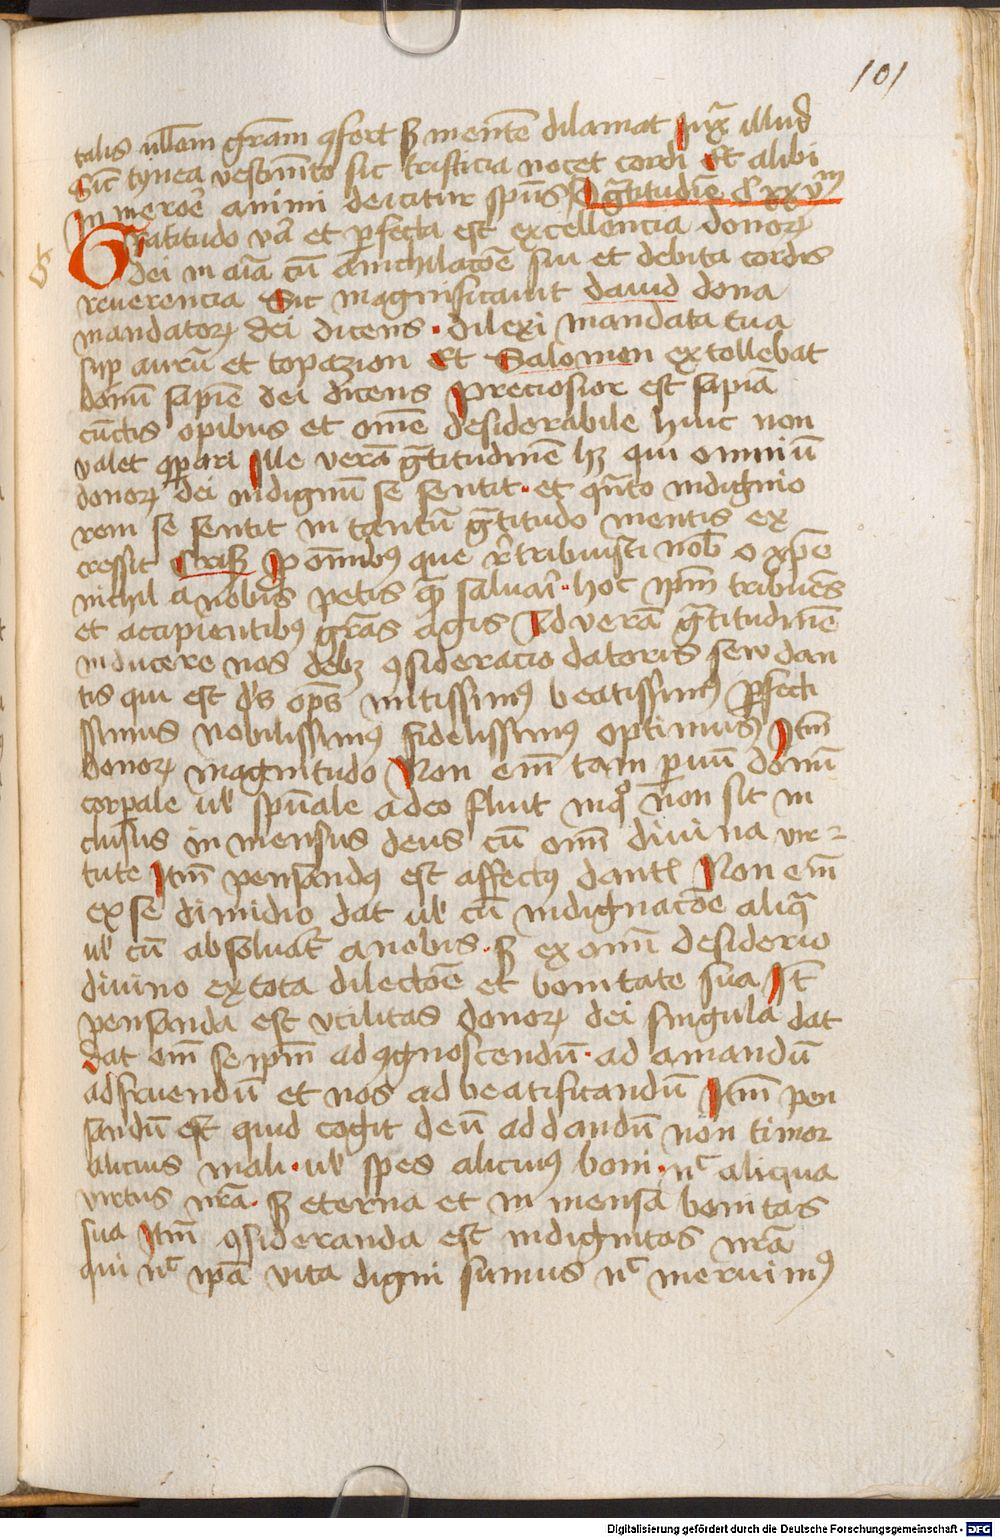 101
talis ullam gr̄am ꝯfert sꝫ mentē dilaniat Iux̄ illud
Sic̄ tynea vestimēto sic tristicia nocet cordi Et alibi
In meroē animi deicitur spūs De gr̄titudīe C xxvm
Gratitudo vā et ꝑfecta est excellencia donoꝝ
dei in aīa cū annichilacōe sui et debita cordis
reuerencia Sic magnificauit dauid dona
mandatoꝝ dei dicens · dilexi mandata tua
suꝑ aurū et topazion Et Salomon extollebat
donū sapiē dei dicens Preciosior est sapīa
cūctis opibus et om̄e desiderabile huic non
valet ꝯꝑari Ille verā gr̄titudinē hꝫ qui omniū
donoꝝ dei indignū se sentit · et qn̄to indignio
rem se sentit in tantū gr̄titudo mentis ex
cressit Crisꝫ P om̄ibꝰ que r̄tribuisti nob̄ o xp̄e
nichil a nobis petis qm̄ saluarī · hoc ip̄m tribuēs
et accipientibꝰ gr̄as agis Ad verā gr̄titudinē
inducere nos debꝫ ꝯsideracio datoris seu dan
tis qui est ds̄ op̄s mitissimꝰ beatissimꝰ ꝑfecti
ssimus nobilissimꝰ fidelissimꝰ optimus Itm̄
donoꝝ magnitudo Non em̄ tam ꝑuū donū
corꝑale ul̄ spūale a deo fluit in qͦ non sit in
clusus in mensus deus cū om̄i diuina vir-
tute Itm̄ pensandꝰ est affectꝰ dantꝭ Non em̄
ex se dimidio dat ul̄ cū indignacōe aliqͣ
ul̄ cū absoluat̄ a nobis · sꝫ ex omī desiderio
diuino ex tota dilectōe et bonitate sua It̄
pensanda est vtilitas donoꝝ dei singula dat
dat em̄ se ip̄m ad ꝯgnoscendū · ad amandū
ad fruendū et nos ad beatificandū Itm̄ pen
sandū est quid cogit deū ad dandū non timor
alicuius mali · ul̄ spes alicuiꝰ boni · nc̄ aliqua
virtus nr̄a · sꝫ eterna et in mensa bonitas
sua Itm̄ ꝯsideranda est indignitas nr̄a
qui nc̄ ip̄a vita digni sumus nc̄ meruimꝰ
Digitalisierung gefördert durch die Deutsche Forschungsgemeinschaft - DFG